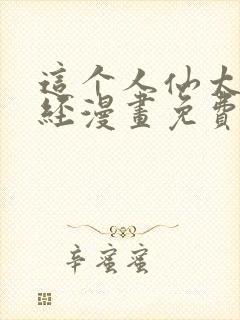 這个人仙太
經漫畫免費
辛蜜蜜